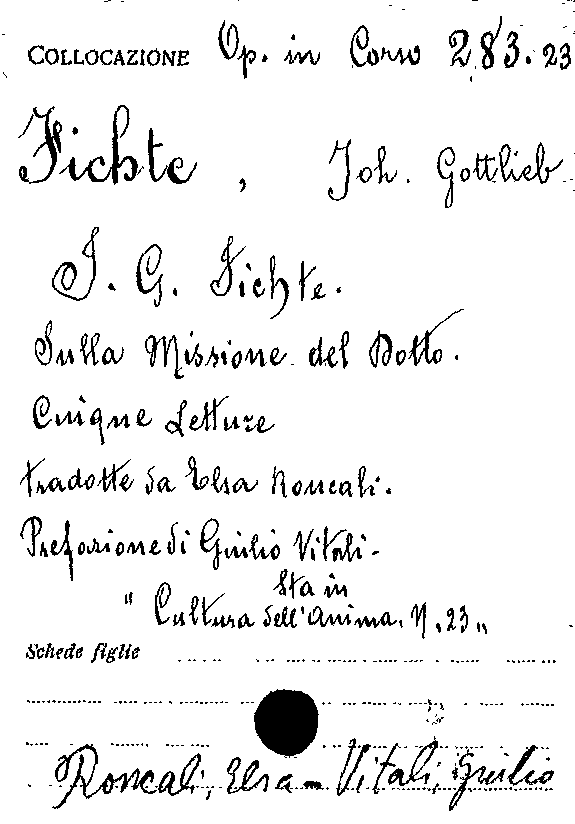 COLLOCAZIONE Op. in Corso 283.23
Fichte, Joh. Gottlieb
J. G. Fichte.
Sulla Missione del Dotto.
Cinque Letture
tradotte da Elsa Roncali.
Prefazione di Giulio Vitali-
Sta in
"Cultura dell'Anima. N. 23"
Schede figlie
Roncali, Elsa - Vitali, Giulio